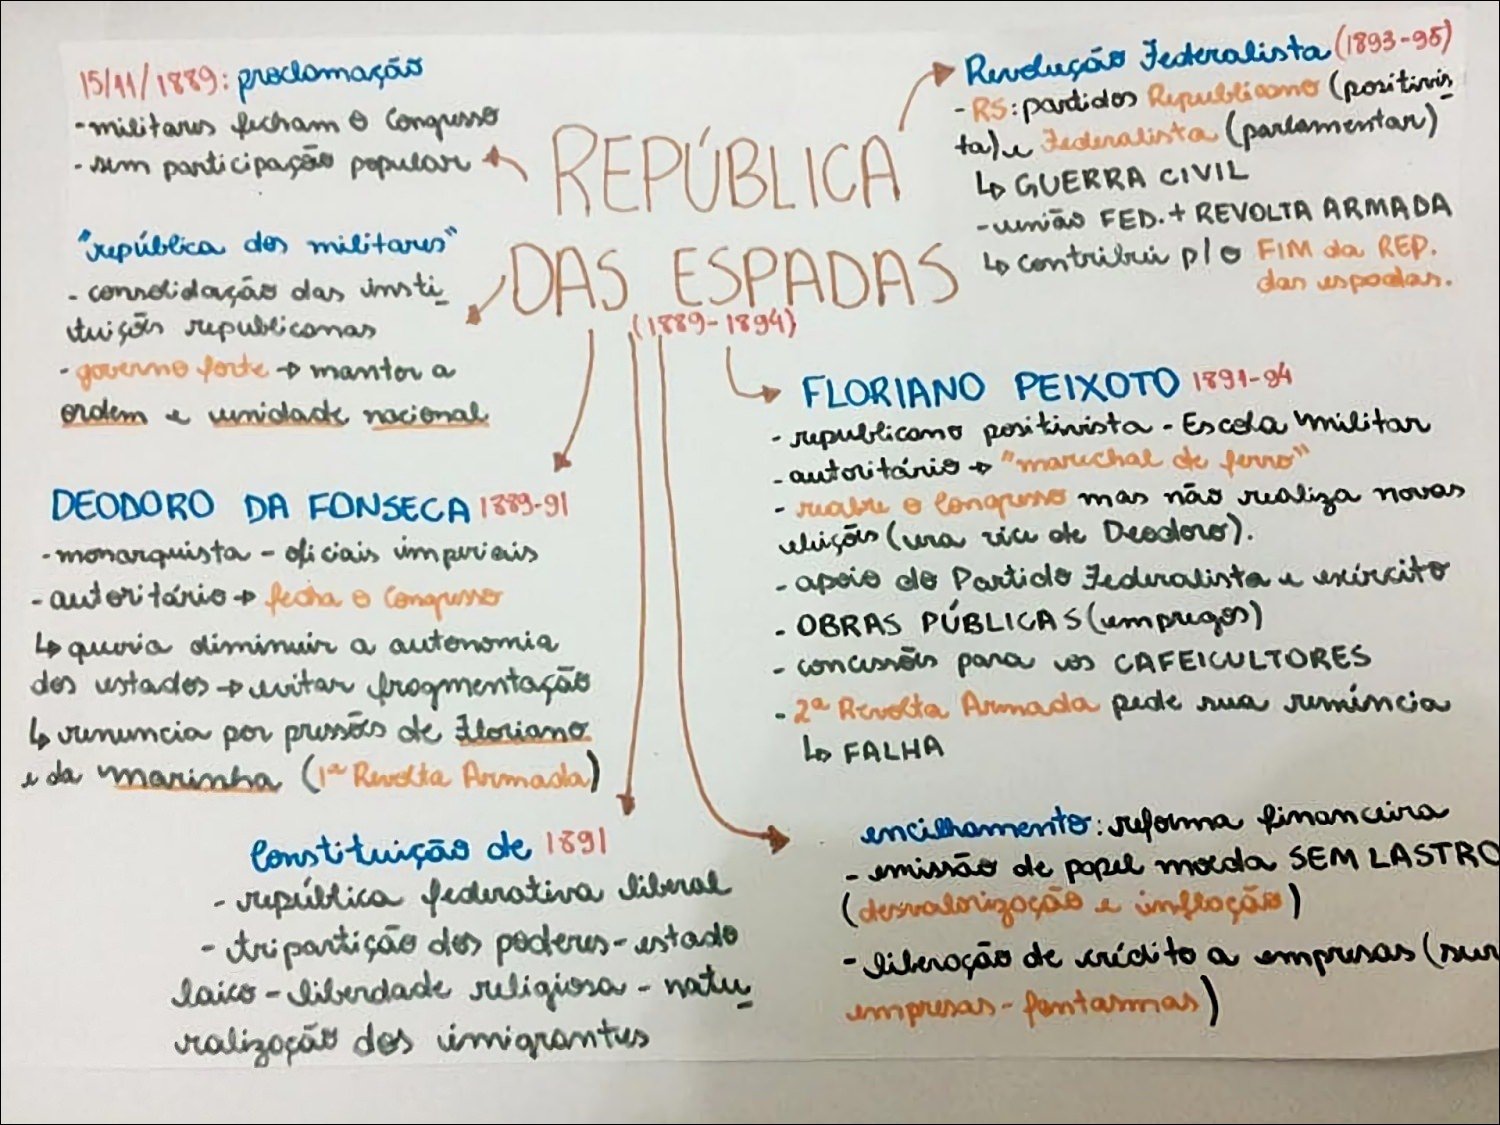 REPÚBLICA
DAS ESPADAS
(1889-1894)
15/11/1889: proclamação
-militares fecham o Congresso
-sem participação popular
"república dos militares"
- consolidação das insti_
tuições republicanas
-governo forte → manter a
ordem e unidade nacional
DEODORO DA FONSECA 1889-91
-monarquista - oficiais imperiais
-autoritário → fecha o Congresso
↳ queria diminuir a autonomia
dos estados → evitar fragmentação
↳ renuncia por pressões de Floriano
e da Marinha (1ª Revolta Armada)
Constituição de 1891
- república federativa liberal
- tripartição dos poderes - estado
laico - liberdade religiosa - natu_
ralização dos imigrantes
Revolução Federalista (1893-95)
- RS: partidos Republicano (positivis_
ta) e Federalista (parlamentar)
↳ GUERRA CIVIL
-união FED. + REVOLTA ARMADA
↳ contribui p/ o FIM da REP.
das espadas.
FLORIANO PEIXOTO 1891-94
- republicano positivista - Escola Militar
- autoritário → "marechal de ferro"
- reabre o Congresso mas não realiza novas
eleições (era vice de Deodoro).
- apoio do Partido Federalista e exército
- OBRAS PÚBLICAS (empregos)
- concessões para os CAFEICULTORES
- 2ª Revolta Armada pede sua renúncia
↳ FALHA
encilhamento: reforma financeira
- emissão de papel moeda SEM LASTRO
(desvalorização e inflação)
- liberação de crédito a empresas (sur
empresas-fantasmas)